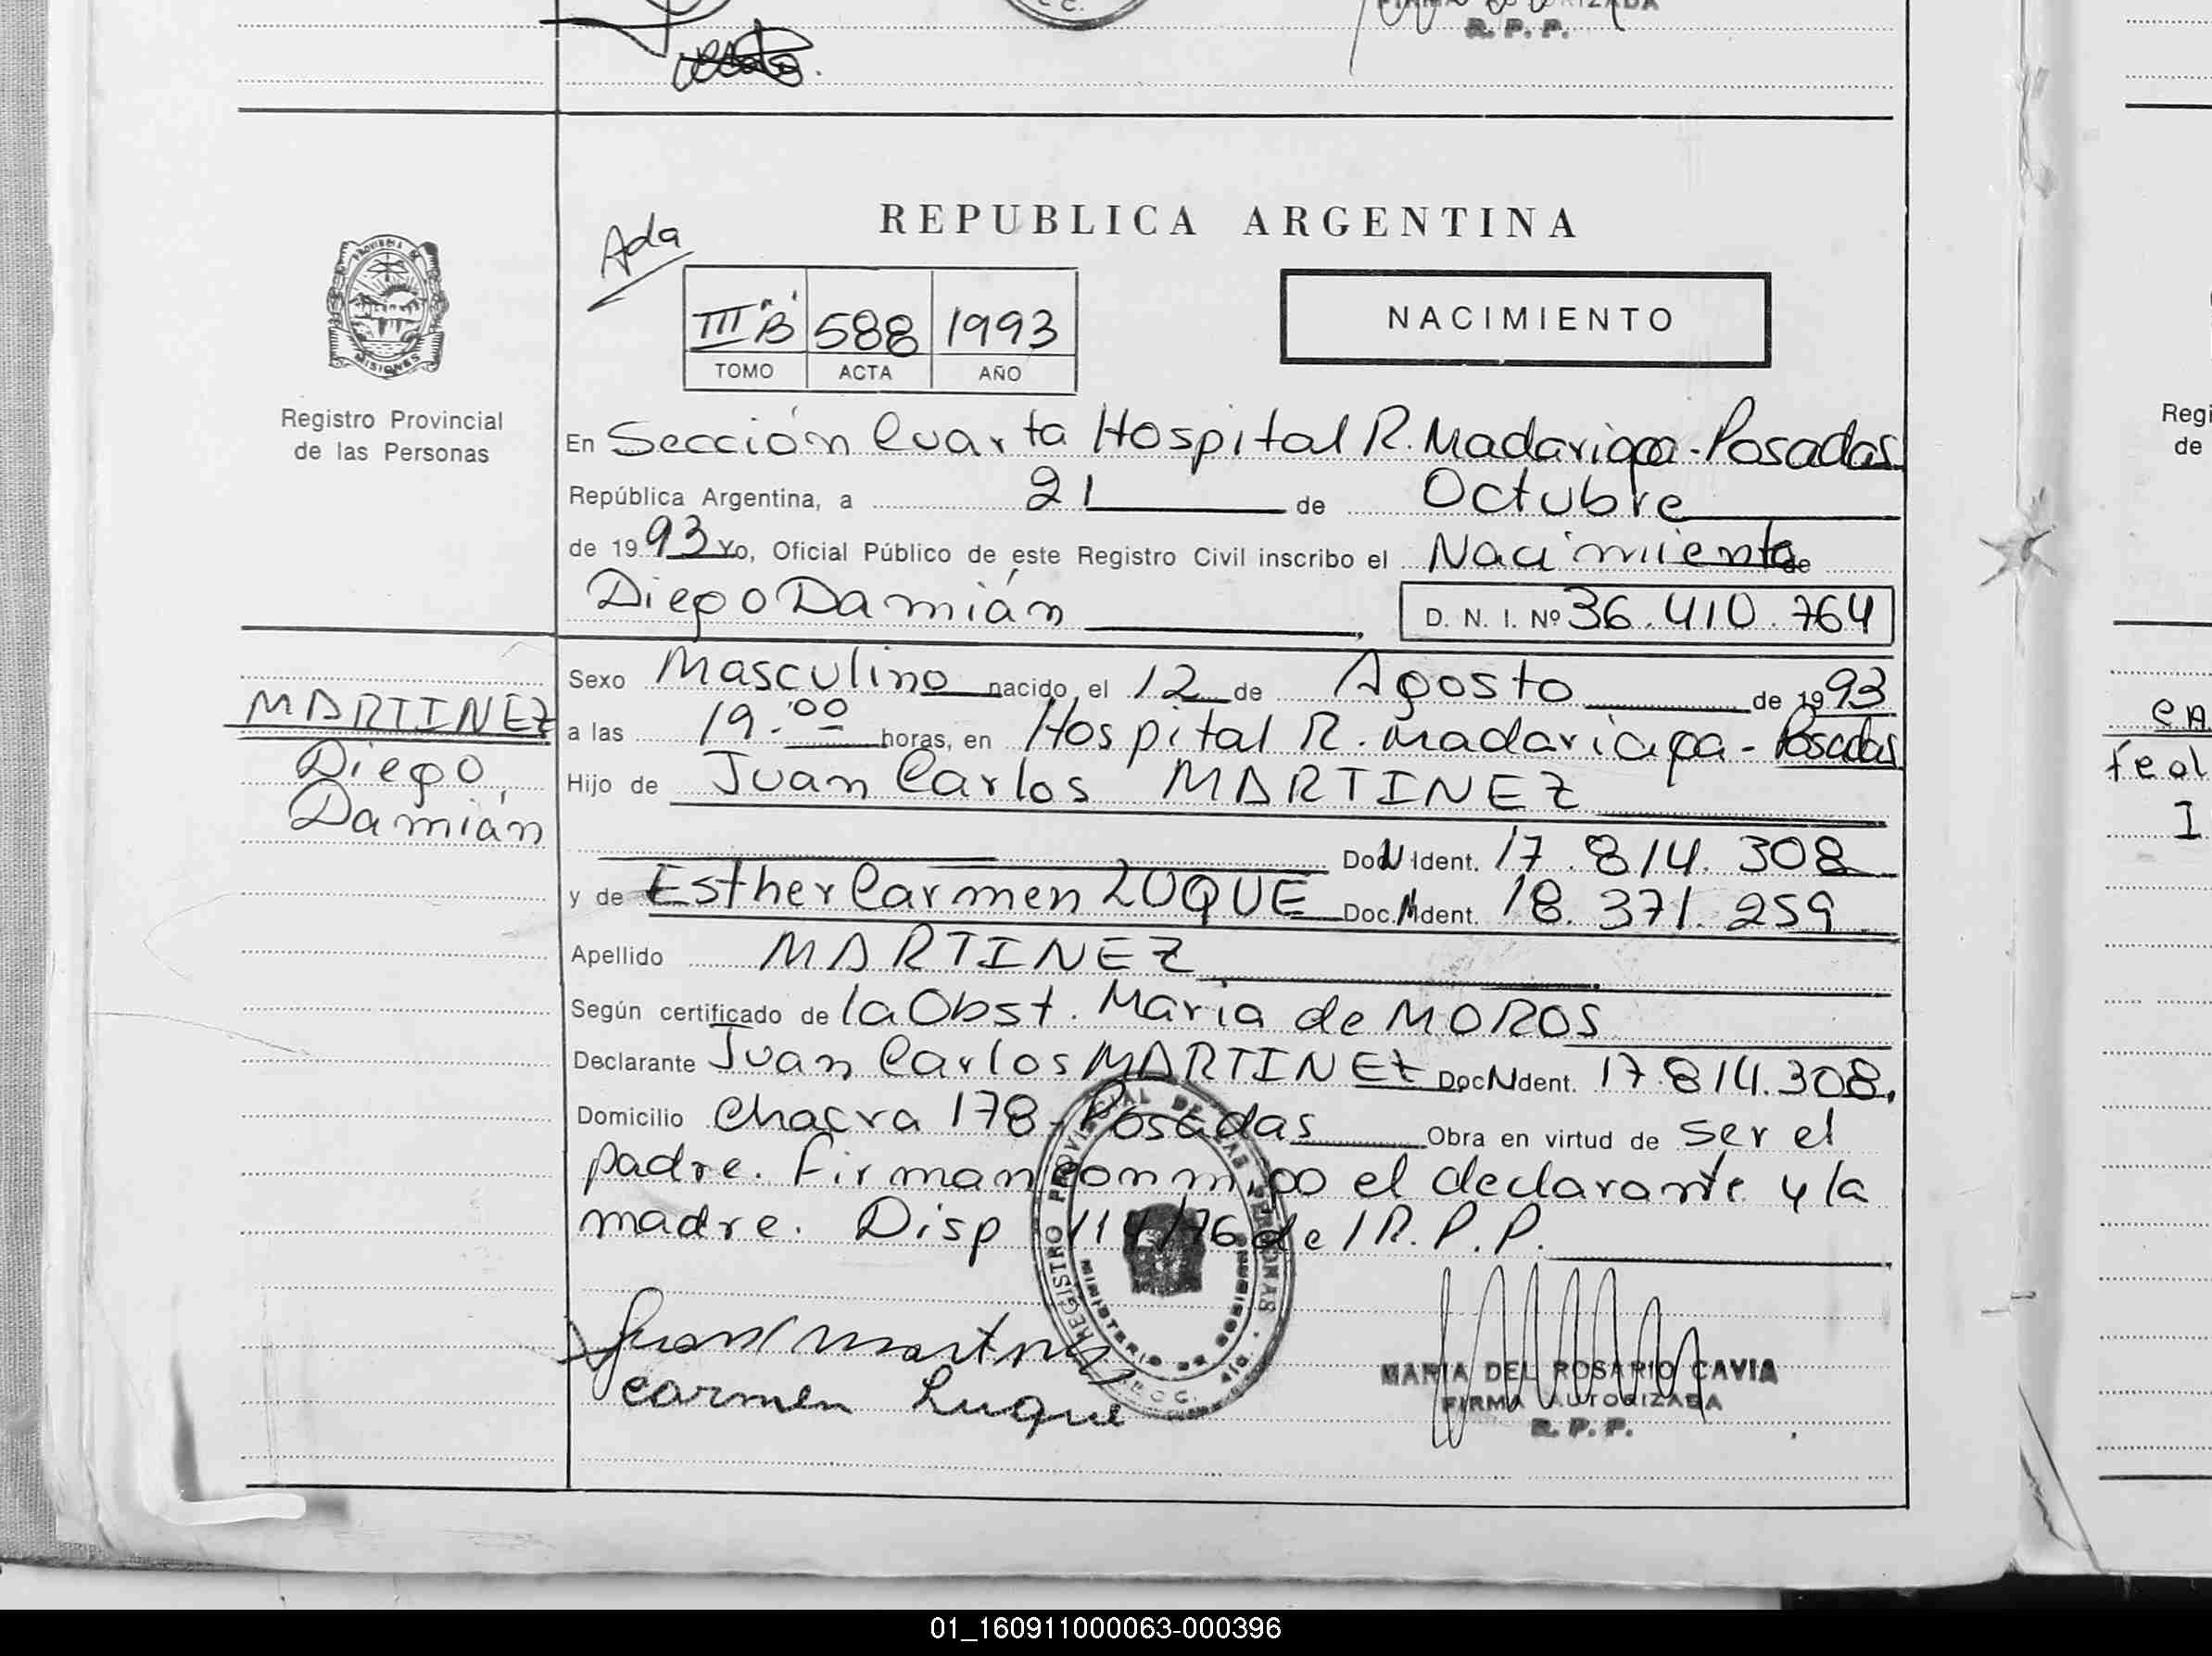 FIRMA AUTORIZADA
R. P. P.
REPUBLICA ARGENTINA
Ada
III "B" 588 1993
TOMO ACTA AÑO
NACIMIENTO
PROVINCIA DE MISIONES
Registro Provincial
de las Personas
En Sección Cuarta Hospital R. Madariaga - Posadas
República Argentina, a 21 de Octubre
de 1993 Yo, Oficial Público de este Registro Civil inscribo el Nacimiento de
Diego Damián, D. N. I. Nº 36.410.764
MARTINEZ
Diego
Damián
Sexo Masculino nacido el 12 de Agosto de 1993
a las 19:00 horas, en Hospital R. Madariaga - Posadas
Hijo de Juan Carlos MARTINEZ
Doc N Ident. 17.814.308
y de Esther Carmen LUQUE Doc. N Ident. 18.371.259
Apellido MARTINEZ
Según certificado de la Obst. Maria de MOROS
Declarante Juan Carlos MARTINEZ Doc N Ident. 17.814.308.
Domicilio Chacra 178 - Posadas Obra en virtud de ser el
padre. Firman conmigo el declarante y la
madre. Disp 114/76 del R. P. P.
REGISTRO PROVINCIAL DE LAS PERSONAS
MINISTERIO DE GOBIERNO
Juan Martinez
Carmen Luque
MARIA DEL ROSARIO CAVIA
FIRMA AUTORIZADA
R. P. P.
Regi
de
I
01_160911000063-000396